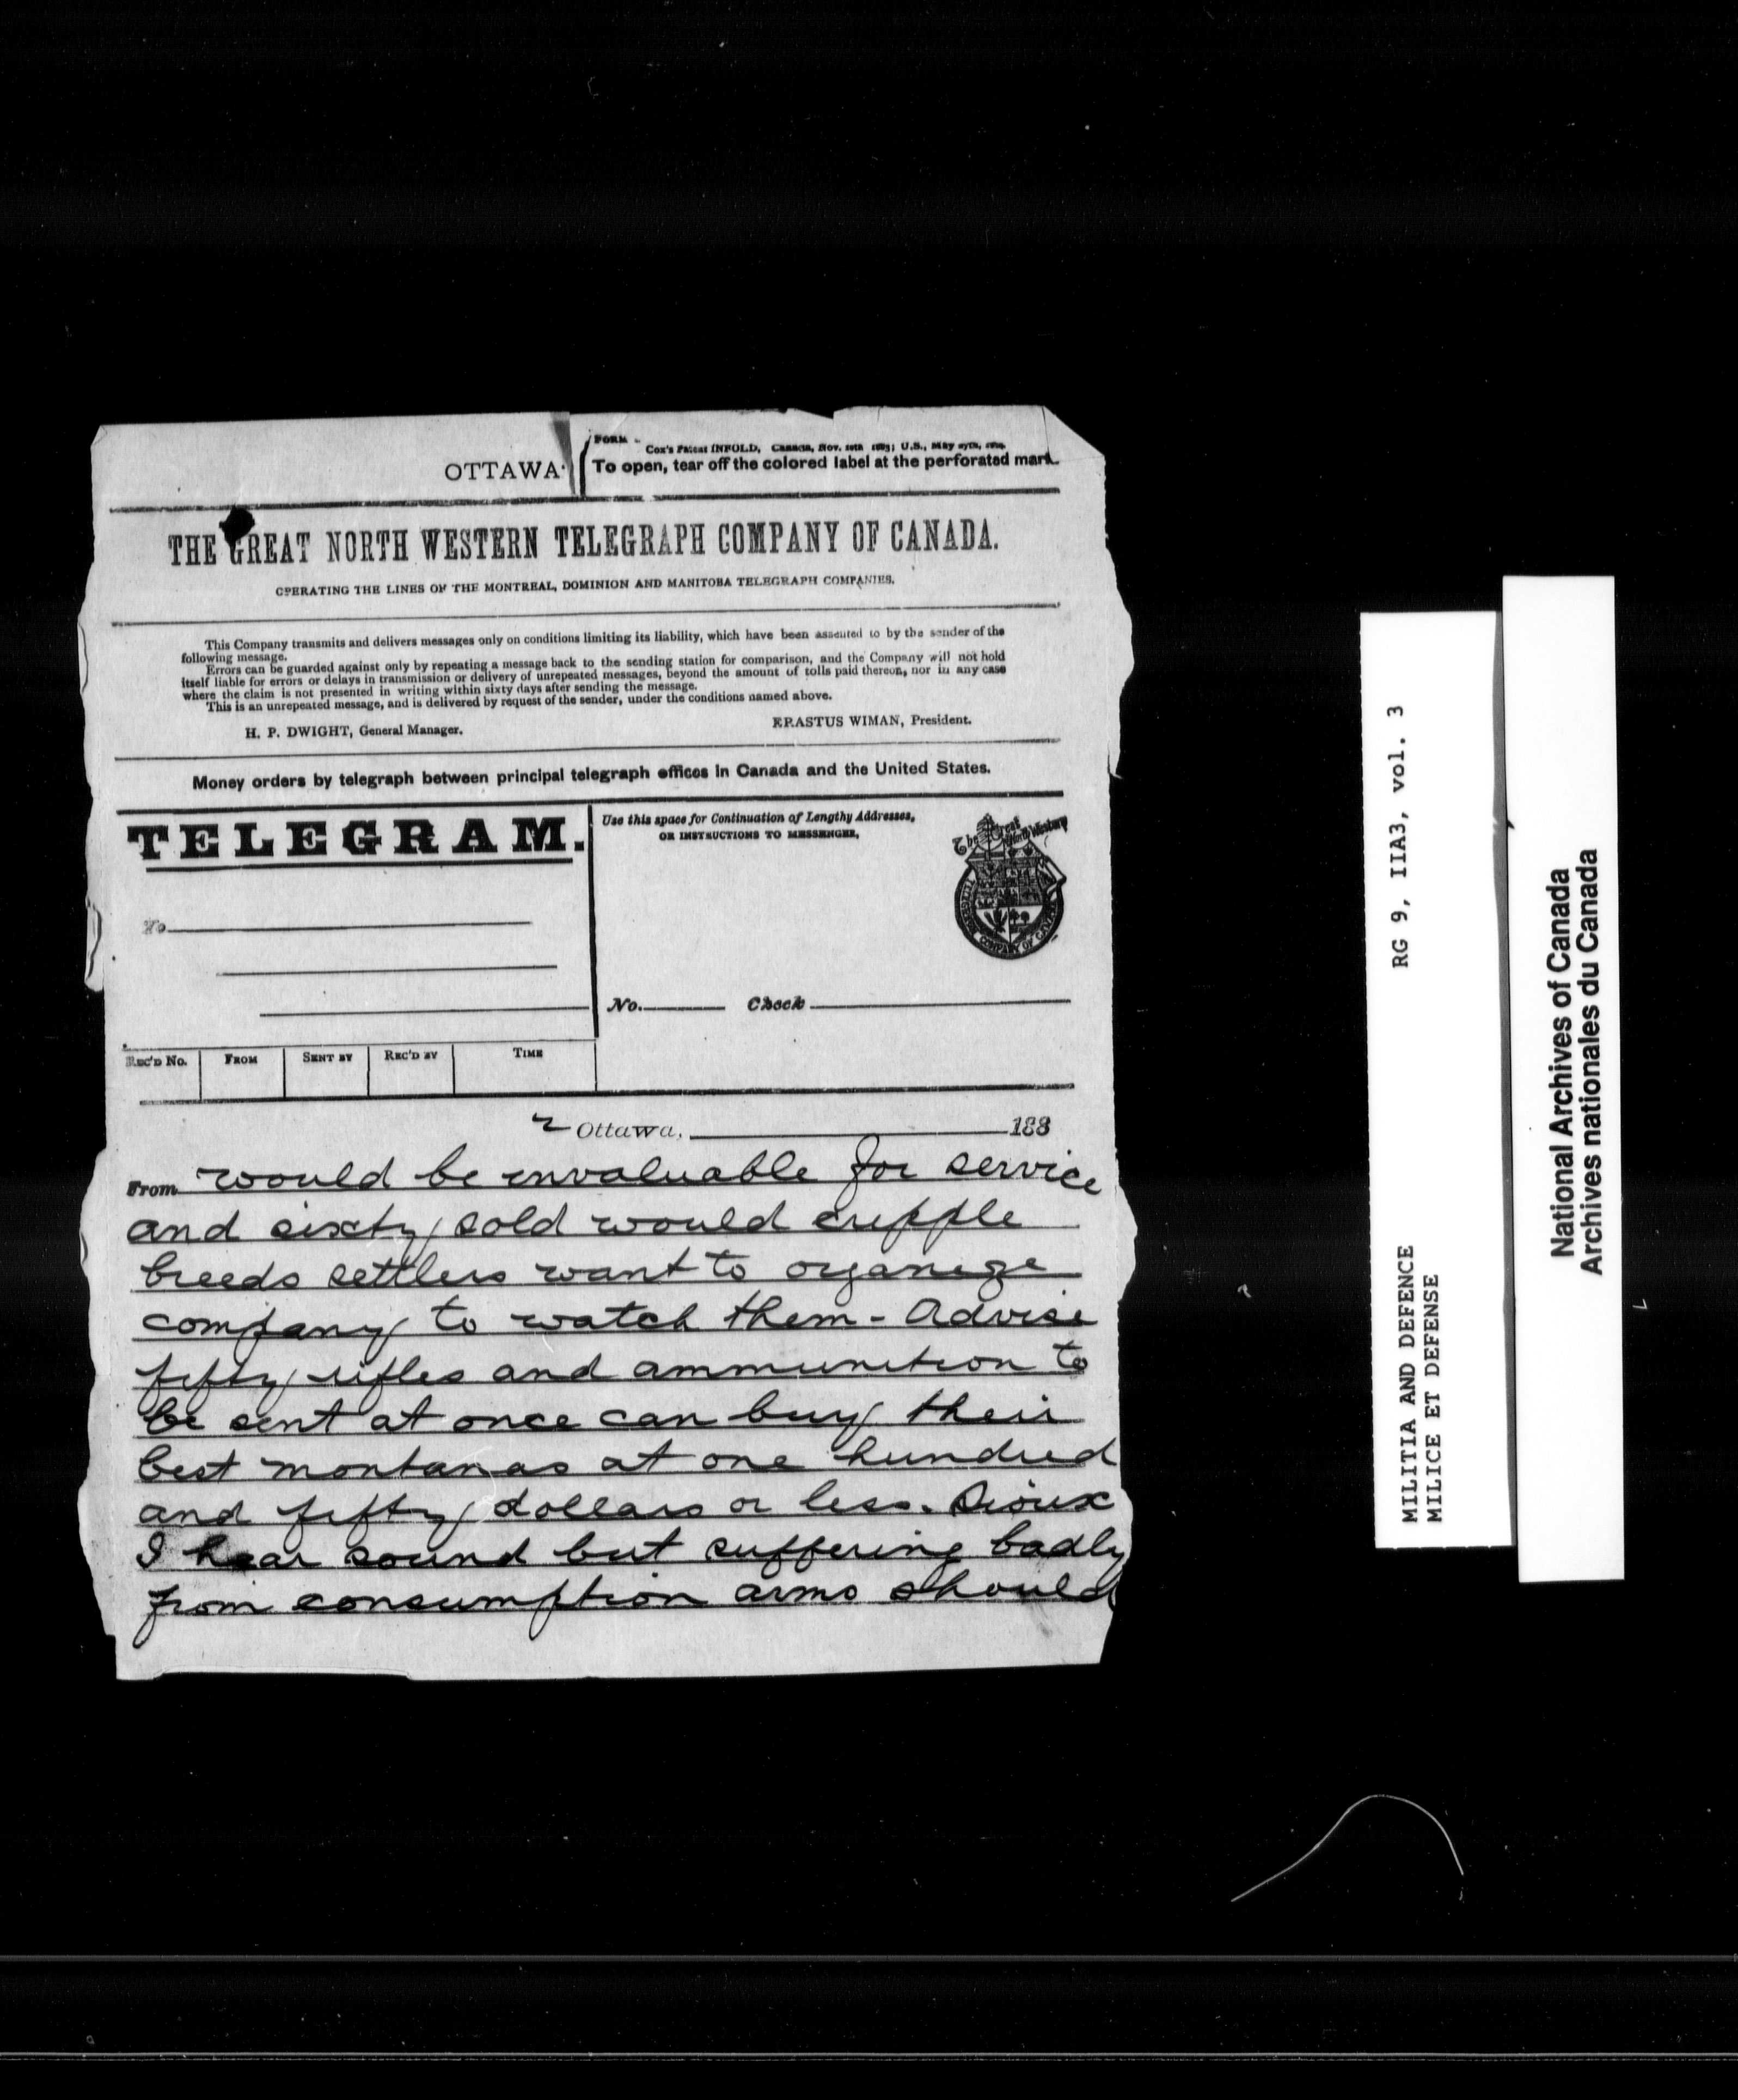 FORM
Cox's Patent INFOLD, Canada, Nov. 10th 1883; U.S., May
To open, tear off the colored label at the perforated mark.
OTTAWA
THE GREAT NORTH WESTERN TELEGRAPH COMPANY OF CANADA.
OPERATING THE LINES OF THE MONTREAL, DOMINION AND MANITOBA TELEGRAPH COMPANIES.
This Company transmits and delivers messages only on conditions limiting its liability, which have been assented to by the sender of the
following message.
Errors can be guarded against only by repeating a message back to the sending station for comparison, and the Company will not hold
itself liable for errors or delays in transmission or delivery of unrepeated messages, beyond the amount of tolls paid thereon, nor in any case
where the claim is not presented in writing within sixty days after sending the message.
This is an unrepeated message, and is delivered by request of the sender, under the conditions named above.
H. P. DWIGHT, General Manager.
ERASTUS WIMAN, President.
Money orders by telegraph between principal telegraph offices in Canada and the United States.
TELEGRAM.
Use this space for Continuation of Lengthy Addresses,
OR INSTRUCTIONS TO MESSENGER,
The Great North Western
TELEGRAPH COMPANY OF CANADA
To
No. Check
Rec'd No. From Sent by Rec'd by Time
2 Ottawa, 188
From would be invaluable for service
and sixty sold would cripple
breeds settlers want to organize
company to watch them - Advise
fifty rifles and ammunition to
be sent at once can buy their
best montanas at one hundred
and fifty dollars or less. Sioux
I hear sound but suffering badly
from consumption arms should
MILITIA AND DEFENCE RG 9, IIA3, vol. 3
MILICE ET DEFENSE
National Archives of Canada
Archives nationales du Canada